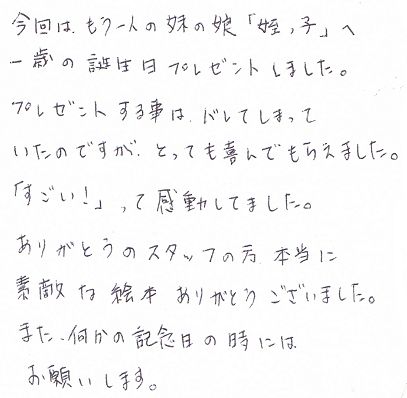 今回は、もう一人の妹の娘「姪っ子」へ
一歳の誕生日プレゼントしました。
プレゼントする事は、バレてしまって
いたのですが、とっても喜んでもらえました。
「すごい！」って感動してました。
ありがとうのスタッフの方、本当に
素敵な絵本ありがとうございました。
また、何かの記念日の時には
お願いします。